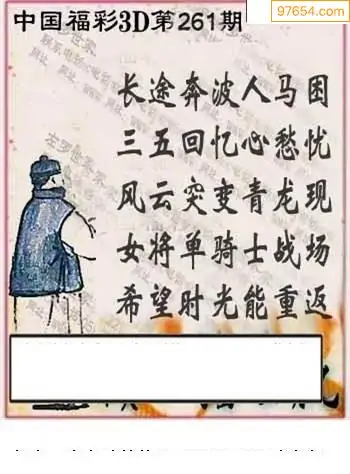 中国福彩3D第261期
97654.com
长途奔波人马困
三五回忆心愁忧
风云突变青龙现
女将单骑士战场
希望时光能重返